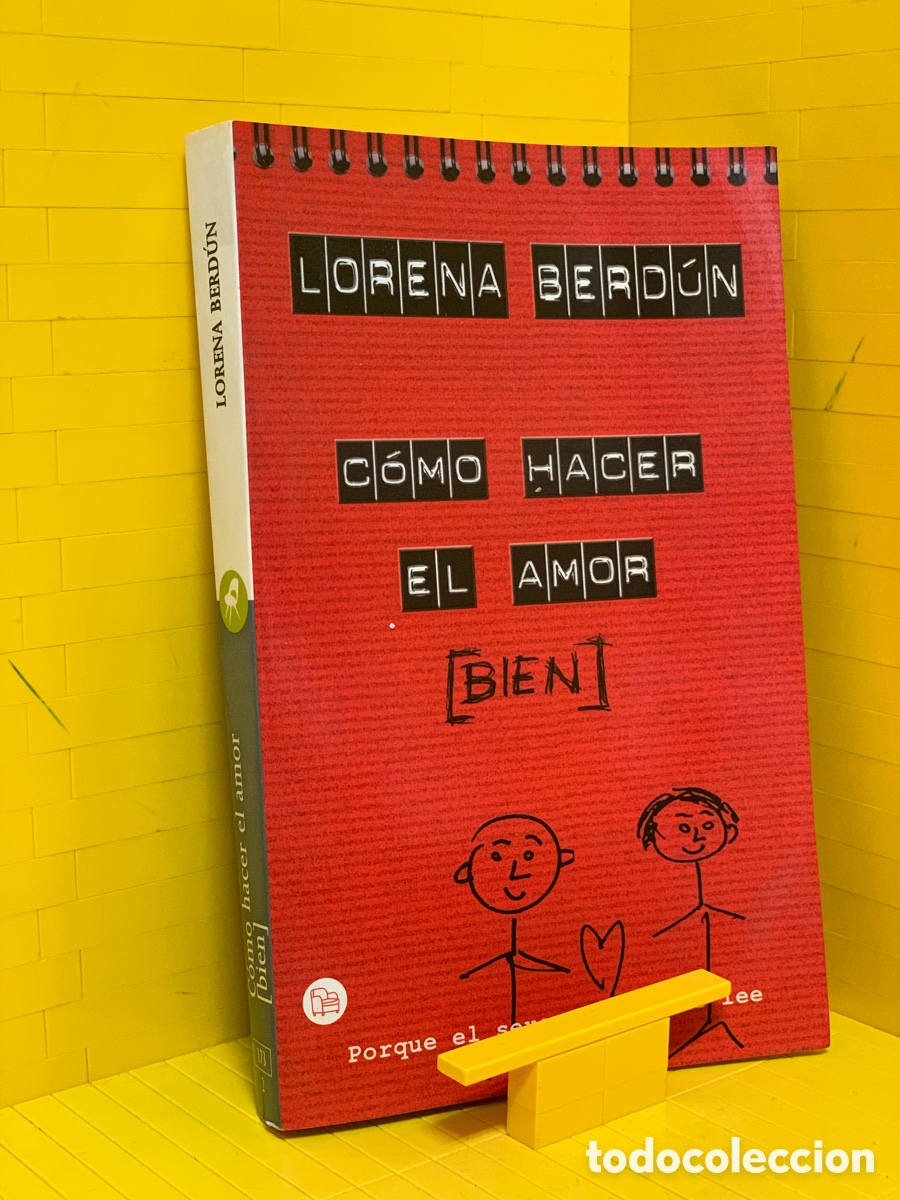 LORENA BERDÚN
CÓMO HACER
EL AMOR
[BIEN]
Porque el
lee
LORENA BERDÚN
Cómo hacer el amor
[bien]
173
1
todocoleccion